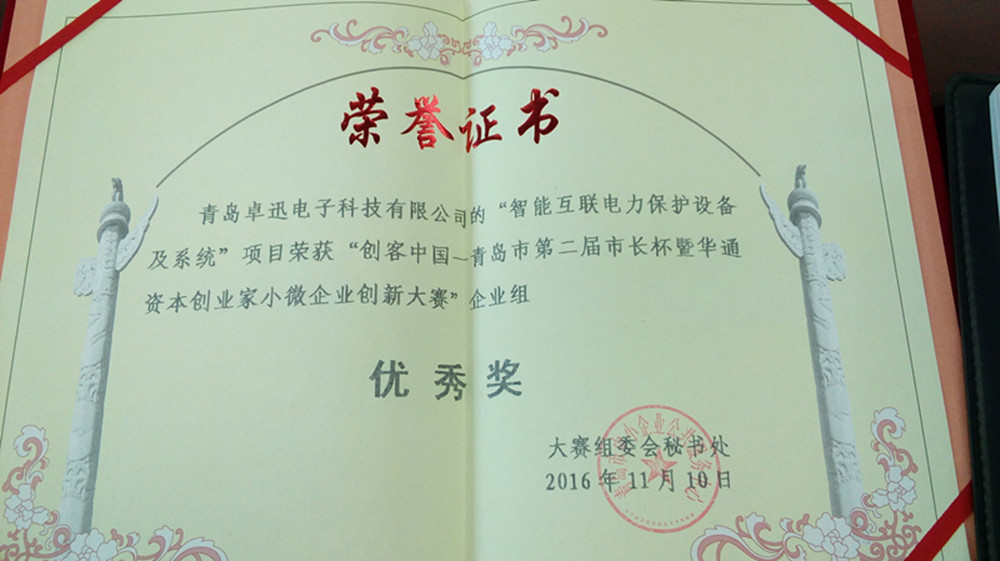 荣誉证书
青岛卓迅电子科技有限公司的“智能互联电力保护设备
及系统”项目荣获“创客中国—青岛市第二届市长杯暨华通
资本创业家小微企业创新大赛”企业组
优秀奖
大赛组委会秘书处
2016年11月10日